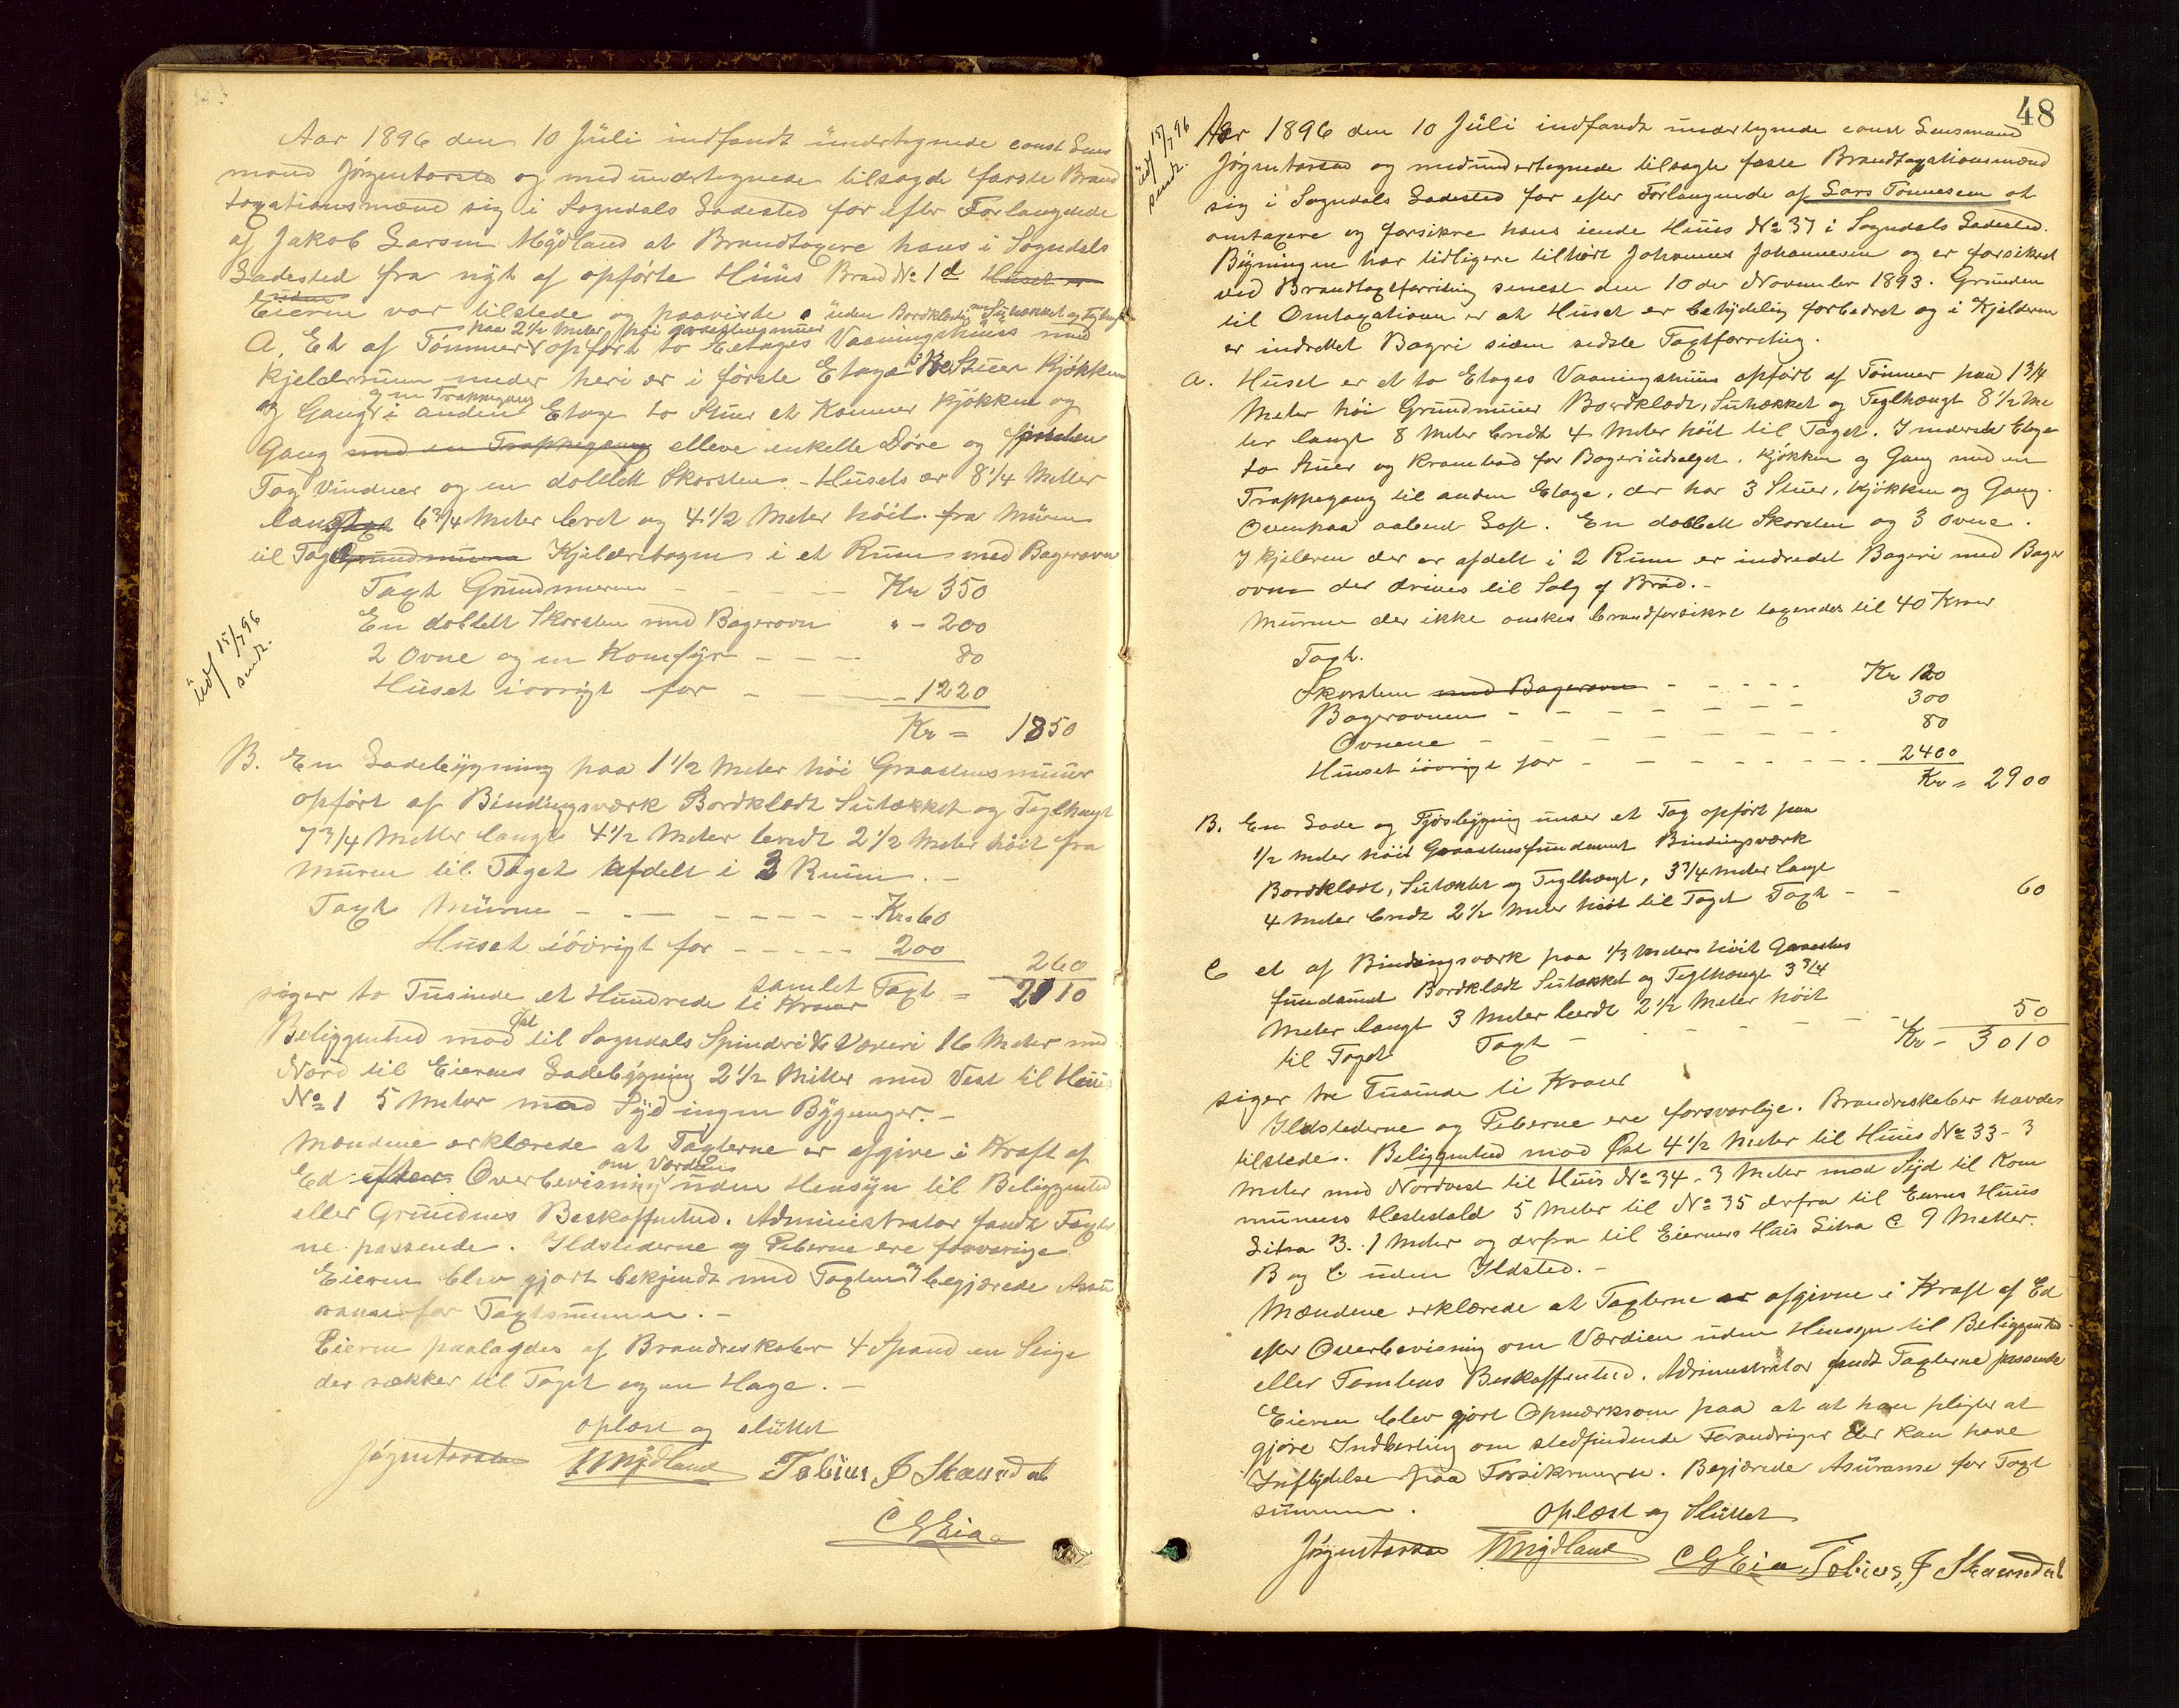 Aar 1896 den 10 Jüli indfandt ündertegnede const Lens
mand Jörgentorstad og medündertegnede tilsagde faste Brand
taxationsmænd sig i Sogndals Ladested for efter Forlangende
af Jakob Larsen Mydland at Brandtaxere hans i Sogndals
Ladested fra nyt af opførte Hüüs Brand No 1d Hüset er
üden
Eieren var tilstede og paaviste üden Bordklædning men Sütækket og Teglhængt
paa 2½ Meter høi graastensmuer
A. Et af Tømmer opført to Etages Vaaningshüüs med
Kjelderrum under heri er i første Etage 3 Stüer Kjøkken
og en Trappegang
og Gang i anden Etage to Stüer et Kammer Kjøkken og
Gang med en Trappegang elleve enkelte Døre og fjorten
Fag Vinduer og en dobbelt Skorsten - Husets er 8¼ Metter
langt 6¾ Meter bret og 4½ Meter høit fra Müren
til Taget Grundmuren Kjelderetagen i et Rum med Bagerovn
Taxt Gründmuren - - - - Kr 350
En dobbelt Skorsten med Bagerovn " - 200
2 Ovne og en Komfyr - - - 80
Hüset iøvrigt for - - - 1220
Kr = 1850
üdf 15/7 96
sendt.
B. En Ladebygning paa 1½ Meter høi Graastensmüür
opført af Bindingsværk Bordklædt Sütækket og Teglhængt
7¾ Metter langt 4½ Meter bredt 2½ Meter høit fra
Müren til Taget Afdelt i 3 Rüm. -
Taxt Mürene - - - - - Kr. 60
Hüset iøvrigt for - - - - 200
260
samlet Taxt = 2110
siger to Tüsinde et Hündrede ti Kroner
Beliggenhed mod Øst til Sogndals Spinderi & Væveri 16 Meter mod
Nord til Eierens Ladebygning 2½ Metter mod Vest til Hüüs
No 1 5 Meter mod Syd ingen Bygninger. -
Mændene erklærede at Taxterne er afgivne i Kraft af
om Værdien
Ed efter Overbevisning üden Hensyn til Beliggenhed
eller Gründens Beskaffenhed. Administrator fandt Taxter
ne passende. Ildstederne og Piberne ere forsvarlige
Eieren blev gjort bekjendt med Taxten og begjærede Assü
rance for Taxtsümmen. -
Eieren paalagdes af Brandreskaber 4 Spand en Stige
der rækker til Taget og en Hage. -
Oplæst og slüttet
Jörgentorstad Mydland Tobias J Skaurdal
C G Eia
48
üdf 15/7 96
sendt.
Aar 1896 den 10 Jüli indfandt ündertegnede const Lensmand
Jörgentorstad og medündertegnede tilsagte faste Brandtaxationsmænd
sig i Sogndals Ladested for efter Forlangende af Lars Tønnesen at
omtaxere og forsikre hans iende Hüüs No 37 i Sogndals Ladested.
Bygningen har tidligere tilhørt Johannes Johannesen og er forsikret
ved Brandtaxtforretning senest den 10de November 1893. Grunden
til Omtaxationen er at Hüset er betydelig forbedret og i Kjelderen
er indrettet Bageri siden sidste Taxtforretning.
A. Hüset er et to Etages Vaaningshüüs opført af Tømmer paa 1¾
Meter høi Grundmuur Bordklædt, Sütækket og Teglhængt 8½ Me
ter langt 8 Meter bredt 4 Meter høit til Taget. I nederste Etage
to Stüer og Krambod for Bageriüdsalget. Kjøkken og Gang med en
Trappegang til anden Etage, der har 3 Stüer, Kjøkken og Gang.
Ovenpaa aabent Loft. En dobbelt Skorsten og 3 Ovne.
I Kjelderen der er afdelt i 2 Rum er indredet Bageri med Bager
ovn der drives til Salg af Brød. -
Murene der ikke ønskes brandforsikret taxeredes til 40 Kroner
Taxt.
Skorsten med Bagerovn - - - - - Kr 120
Bagerovnen - - - - - - - 300
Ovnene - - - - - - - 80
Hüset iøvrigt for - - - - - - - 2400
Kr = 2900
B. En Lade og Fjøsbygning ünder et Tag opført paa
½ Meter høit Graastensfundament Bindingsværk
Bordklædt, Sütækket og Teglhængt, 3¾ Meter langt
4 Meter bredt 2½ Meter høit til Taget Taxt - - 60
C et af Bindingsværk paa ⅓ Meters høit Graastens
fundament Bordklædt Sütækket og Teglhængt 3¾
Meter langt 3 Meter bredt 2½ Meter høit
til Taget Taxt - - - - - 50
Kr = 3010
siger tre Tüsinde ti Kroner
Ildstederne og Piberne ere forsvarlige. Brandreskaber havdes
tilstede. Beliggenhed mod Øst 4½ Meter til Hüüs No 33 - 3
Meter mod Nordvest til Hüüs No 34. 3 Meter mod Syd til Kom
munens Hestestald 5 Meter til No 35 derfra til Eierens Hüüs
Litra B. 1 Meter og derfra til Eierens Hüüs Litra C 9 Metter.
B og C üden Ildsted. -
Mændene erklærede at Taxterne er afgivne i Kraft af Ed
efter Overbevisning om Værdien üden Hensyn til Beliggenhed
eller Tomtens Beskaffenhed. Administrator fandt Taxterne passende
Eieren blev gjort Opmærksom paa at at han pligter at
gjøre Indberetning om stedfindende Forandringer der kan have
Indflydelse paa Forsikringen. Begjærede Asürance for Taxt
sümmen.
Oplæst og Slüttet
Jörgentorstad Mydland C G Eia Tobias J Skaurdal